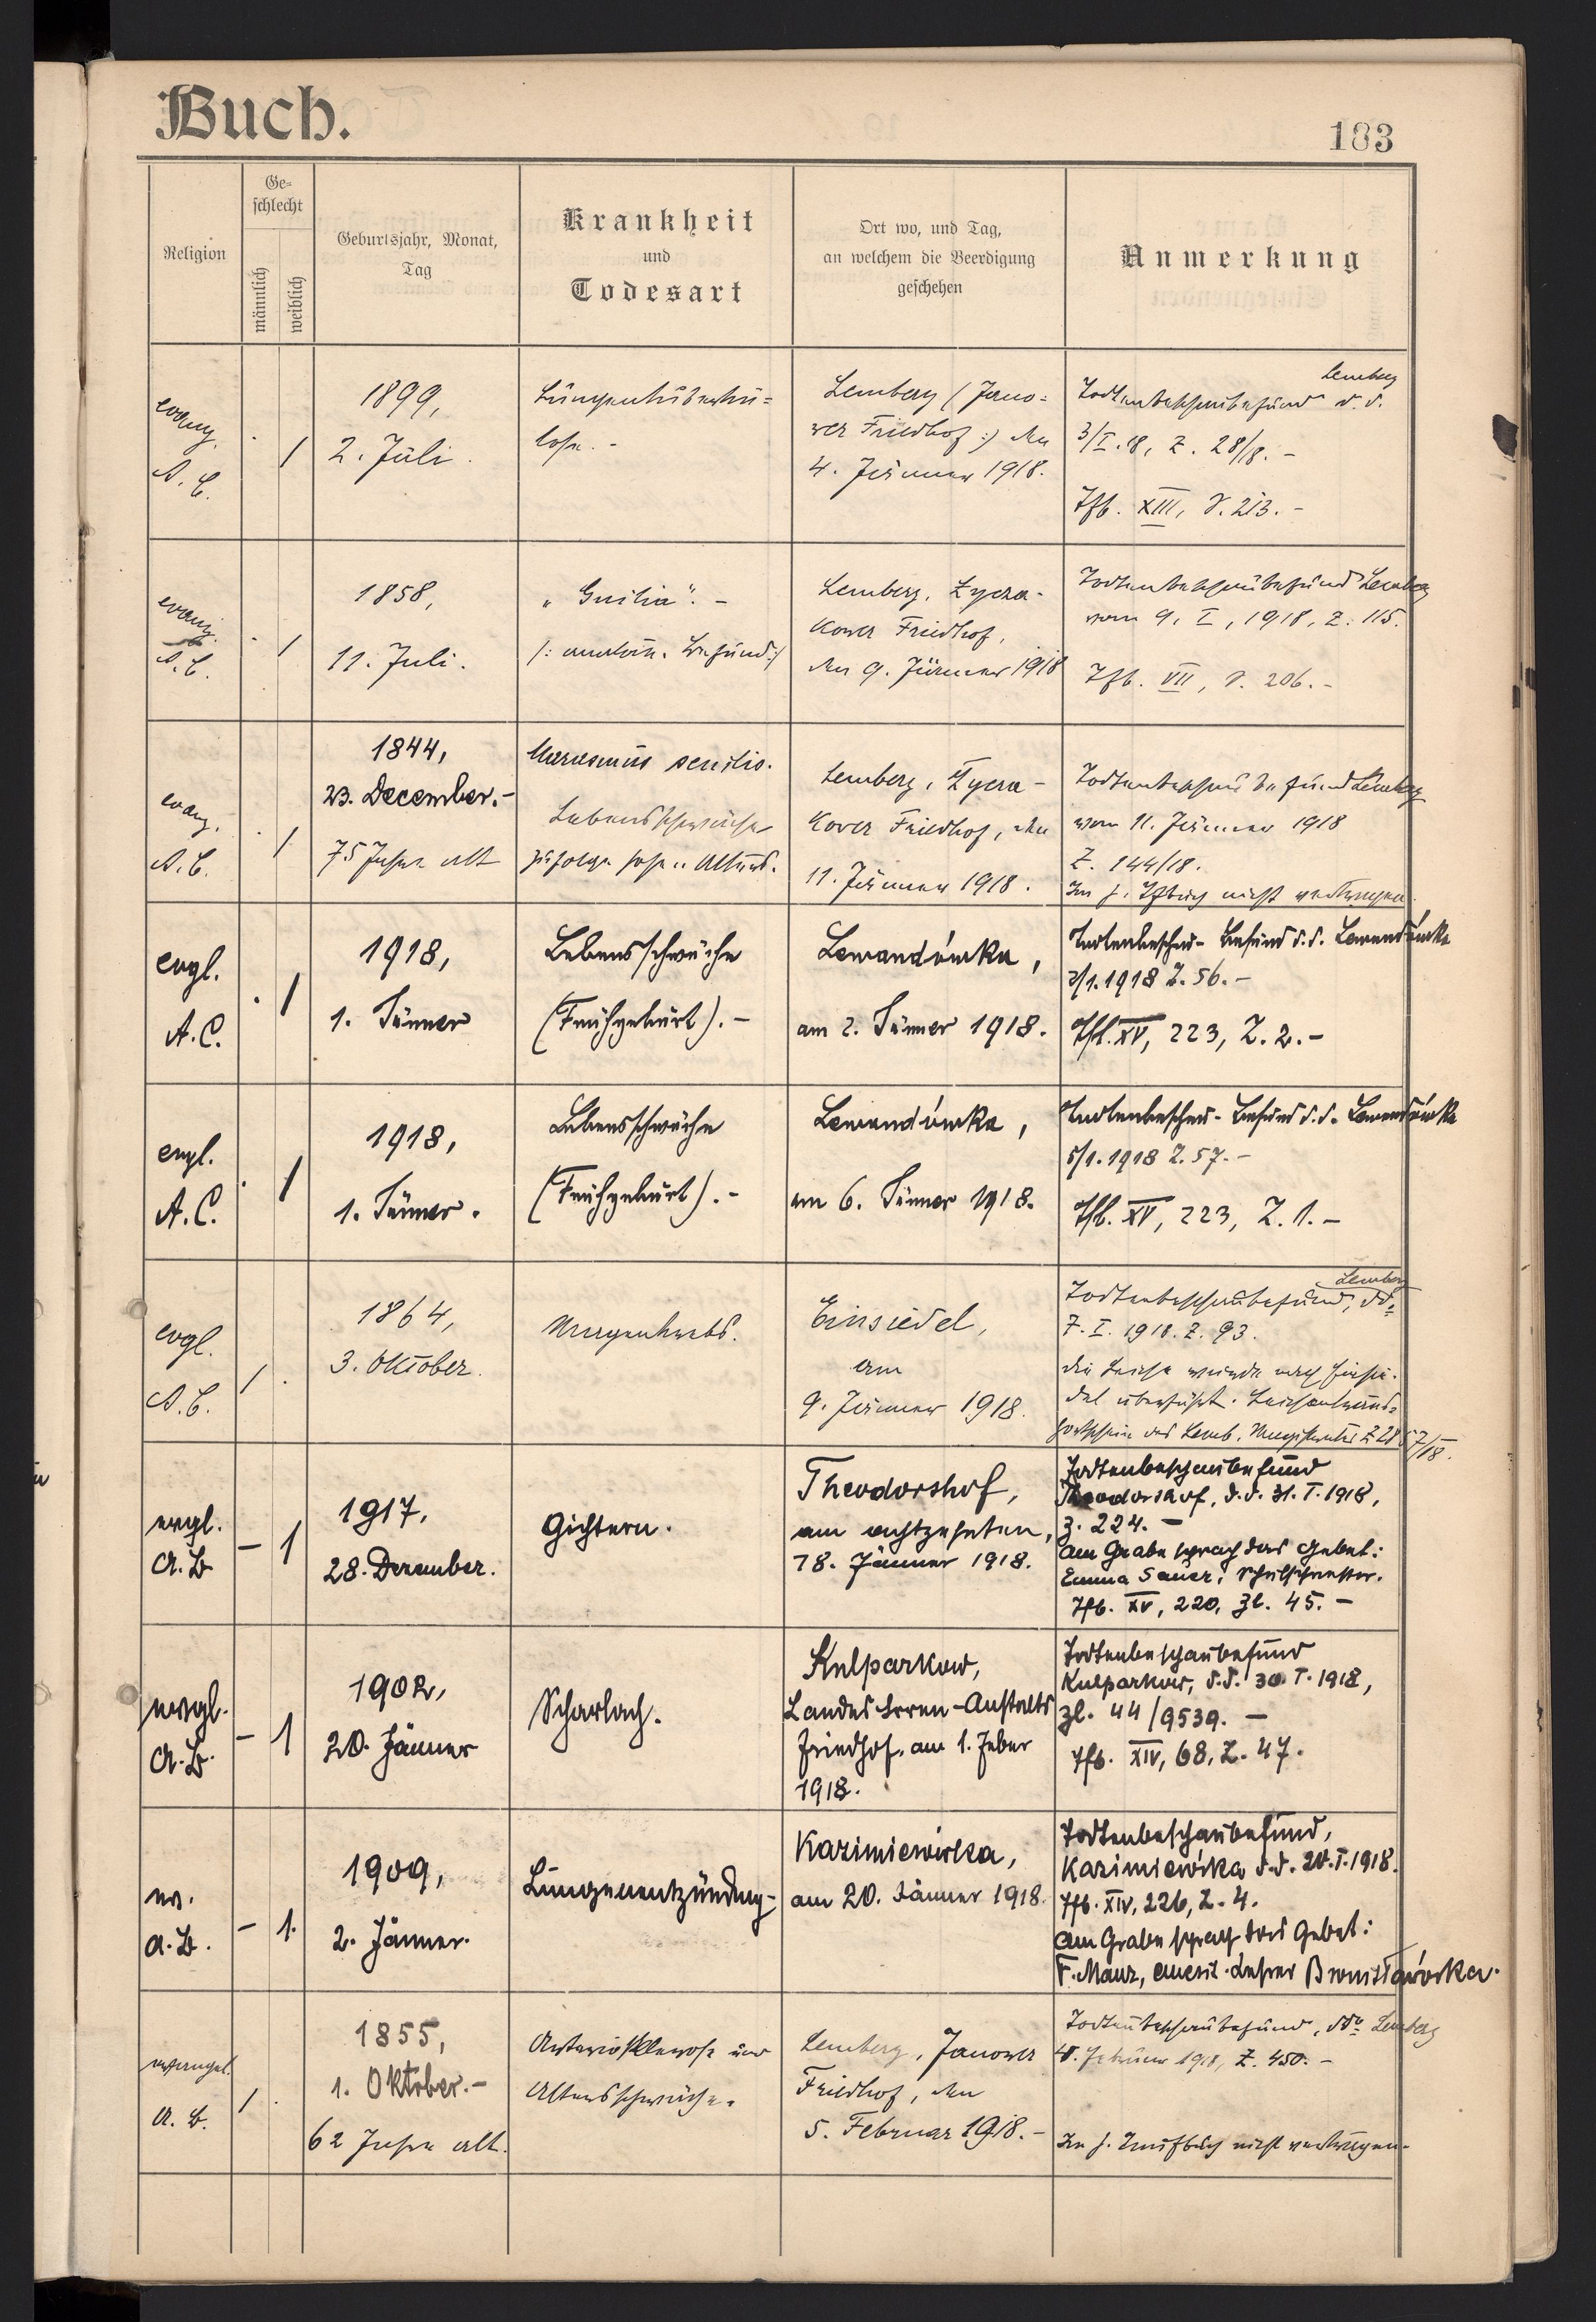 Buch.
183
Religion
Ge-
schlecht
männlich
weiblich
Geburtsjahr, Monat,
Tag
Krankheit
und
Todesart
Ort wo, und Tag,
an welchem die Beerdigung
geschehen
Anmerkung
evang.
A. C.
. /
1899,
2. Juli.
Lungentuberku=
lose. -
Lemberg (Jano=
wer Friedhof :) den
4. Jänner 1918.
Lemberg
Todtenbeschaubefund d. d.
3/I. 18, Z. 28/18. -
Tfb. XIII, S. 213. -
evang.
A. C.
. /
1858,
11. Juli.
/: Befund :/
Lemberg, Lycza-
kower Friedhof,
den 9. Jänner 1918
Todtenbeschaubefund Lemberg
vom 9. I, 1918, Z. 115.
Tfb. VII, S. 206. -
evang.
A. C.
. /
1844,
23. December. -
75 Jahre alt
Marasmus senilis.
Lebensschwäche
zufolge hohen Alters.
Lemberg, Lycza-
kower Friedhof, den
11. Jänner 1918.
Todtenbeschaubefund Lemberg
vom 11. Jänner 1918
Z. 144/18.
Im h. Tfbuch nicht eingetragen.
evgl.
A. C.
. /
1918,
1. Jänner
Lebensschwäche
(Frühgeburt). -
Lewandówka,
am 2. Jänner 1918.
Todtenbeschau- Befund d. d. Lewandówka
2/1. 1918 Z. 56. -
Tfb. XV, 223, Z. 2. -
evgl.
A. C.
. /
1918,
1. Jänner.
Lebensschwäche
(Frühgeburt). -
Lewandówka,
am 6. Jänner 1918.
Todtenbeschau- Befund d. d. Lewandówka
5/1. 1918 Z. 57. -
Tfb. XV, 223, Z. 1. -
evgl.
A. C.
/ .
1864,
3. Oktober.
Magenkrebs.
Einsiedel,
am
9. Jänner 1918.
Lemberg
Todtenbeschaubefund, dd.
7. I. 1918. Z. 93.
die Leiche wurde nach Einsie-
del überführt. Leichentrans=
portschein des Lemb. Magistrates Z 2857/18.
evgl.
A. B
- 1
1917,
28. Dezember.
Gichtern.
Theodorshof,
am achtzehnten,
18. Jänner 1918.
Todtenbeschaubefund
Theodorshof, d. d. 31. I. 1918,
Z. 224. -
Am Grabe sprach das Gebet:
Emma Sauer, Schulschwester.
Tfb. XV, 220, Zl. 45. -
evgl.
A. B.
- 1
1902,
20. Jänner
Scharlach.
Kulparkow,
Landes Irren-Anstalts
friedhof, am 1. Feber
1918.
Todtenbeschaubefund
Kulparkow, d. d. 30. I. 1918,
Zl. 44/9539. -
Tfb. XIV, 68, Z. 47.
ev.
A. B.
- 1.
1909,
2. Jänner.
Lungenentzündung-
Kazimierówka,
am 20. Jänner 1918.
Todtenbeschaubefund,
Kazimierówka d. d. 20. I. 1918.
Tfb. XIV, 226, Z. 4.
Am Grabe sprach das Gebet:
F. Manz, emerit. Lehrer Bronisławówka.
evangel.
A. B.
/ .
1855,
1. Oktober. -
62 Jahre alt.
Arteriosklerose und
Altersschwäche.
Lemberg, Janower
Friedhof, den
5. Februar 1918. -
Todtenbeschaubefund, ddo Lemberg
4. Februar 1918, Z. 450. -
Im h. Taufbuch nicht eingetragen. -